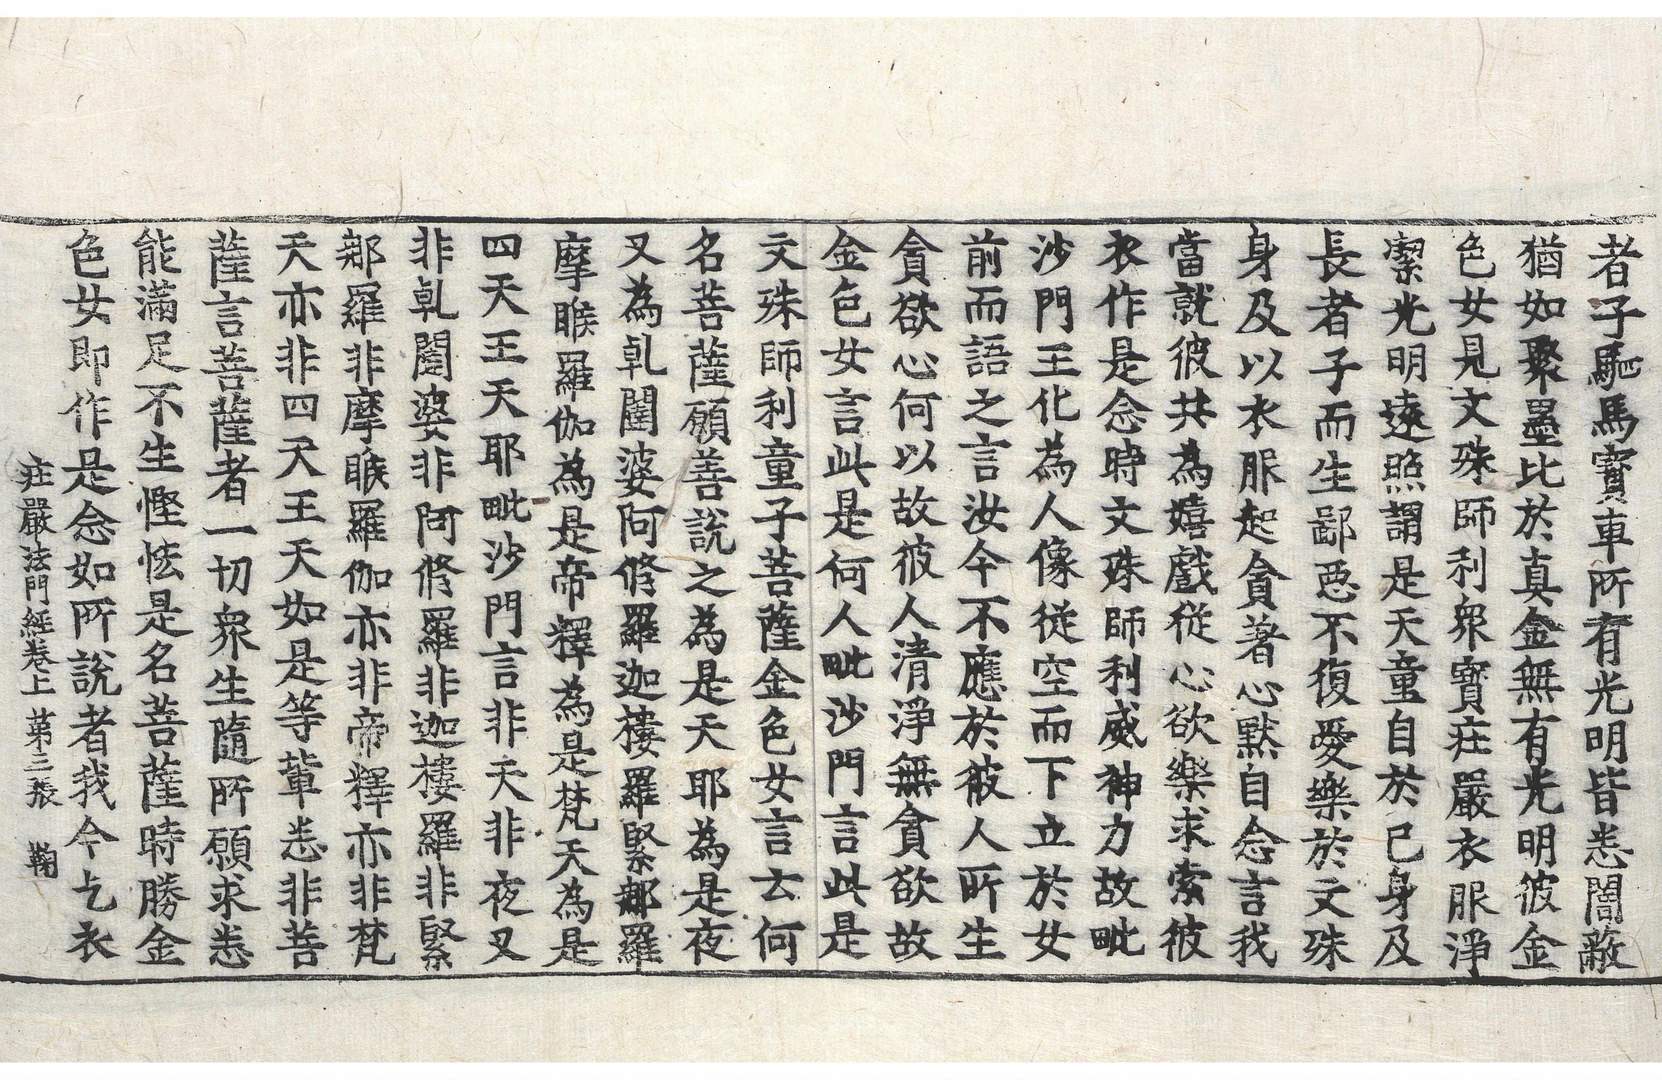 者子駈馬寶車所有光明皆悉闇蔽
猶如聚墨比於真金無有光明彼金
色女見文殊師利衆寶莊嚴衣服淨
潔光明遠照謂是天童自於已身及
長者子而生鄙惡不復愛樂於文殊
身及以衣服起貪著心默自念言我
當就彼共為嬉戲從心欲樂求索彼
衣作是念時文殊師利威神力故毗
沙門王化為人像從空而下立於女
前而語之言汝今不應於彼人所生
貪欲心何以故彼人清淨無貪欲故
金色女言此是何人毗沙門言此是
文殊師利童子菩薩金色女言云何
名菩薩願善說之為是天耶為是夜
叉為乹闥婆阿脩羅迦樓羅緊那羅
摩睺羅伽為是帝釋為是梵天為是
四天王天耶毗沙門言非天非夜叉
非乹闥婆非阿脩羅非迦樓羅非緊
那羅非摩睺羅伽亦非帝釋亦非梵
天亦非四天王天如是等輩悉非菩
薩言菩薩者一切衆生隨所願求悉
能滿足不生慳悋是名菩薩時勝金
色女即作是念如所說者我今乞衣
莊嚴法門經卷上 第三張 鞠